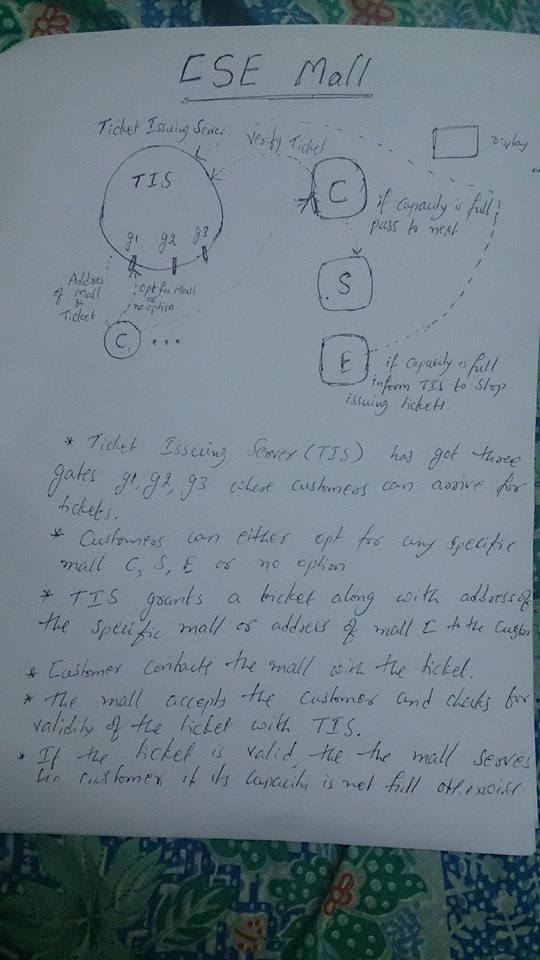 CSE Mall
Ticket Issuing Server
Verify Ticket
Display
TIS
C
if capacity is full
pass to next
g1 g2 g3
Address
of mall
&
Ticket
opt for Mall
or
no option
S
C1 ...
E
if capacity is full
inform TIS to stop
issuing tickets.
* Ticket Issuing Server (TIS) has got three
gates g1, g2, g3 where customers can arrive for
tickets.
* Customers can either opt for any specific
mall C, S, E or no option.
* TIS grants a ticket along with address of
the specific mall or address of mall C to the
* Customer contacts the mall with the ticket.
* The mall accepts the customer and checks for
validity of the ticket with TIS.
* If the ticket is valid, the the mall serves
customer if its capacity is not full otherwise